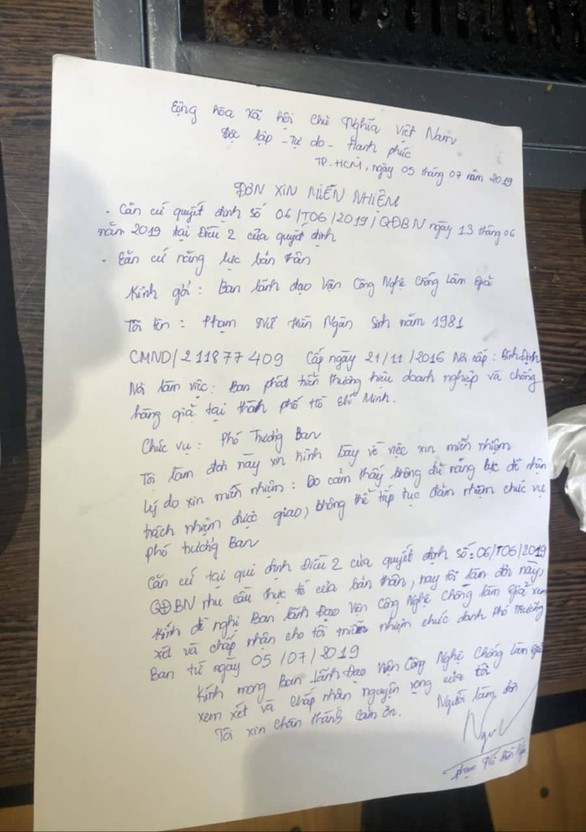 Cộng hòa xã hội chủ nghĩa Việt Nam
Độc lập - Tự do - Hạnh phúc
TP.HCM, ngày 05 tháng 07 năm 2019
ĐƠN XIN MIỄN NHIỆM
- Căn cứ quyết định số 06/T06/2019/QĐBN ngày 13 tháng 06
năm 2019 tại Điều 2 của quyết định
- Căn cứ năng lực bản thân
Kính gởi : Ban lãnh đạo Viện Công Nghệ Chống Làm Giả
Tôi tên : Phạm Nữ Hiền Ngân Sinh năm 1981
CMND/211877409 Cấp ngày 21/11/2016 Nơi cấp : Bình Định
Nơi làm việc : Ban phát triển thương hiệu doanh nghiệp và chống
hàng giả tại thành phố Hồ Chí Minh.
Chức vụ : Phó Trưởng Ban
Tôi làm đơn này xin trình bày về việc xin miễn nhiệm
Lý do xin miễn nhiệm : Do cảm thấy không đủ năng lực để nhận
trách nhiệm được giao, không thể tiếp tục đảm nhiệm chức vụ
phó trưởng Ban
Căn cứ tại qui định Điều 2 của quyết định số : 06/T06/2019
QĐBN nhu cầu thực tế của bản thân, nay tôi làm đơn này,
Kính đề nghị Ban Lãnh Đạo Viện Công Nghệ Chống làm giả xem
xét và chấp nhận cho tôi miễn nhiệm chức danh Phó Trưởng
Ban từ ngày 05/07/2019
Kính mong Ban Lãnh Đạo Viện Công Nghệ Chống Làm Giả
xem xét và chấp nhận nguyện vọng của tôi
Tôi xin chân thành cảm ơn. Người làm đơn